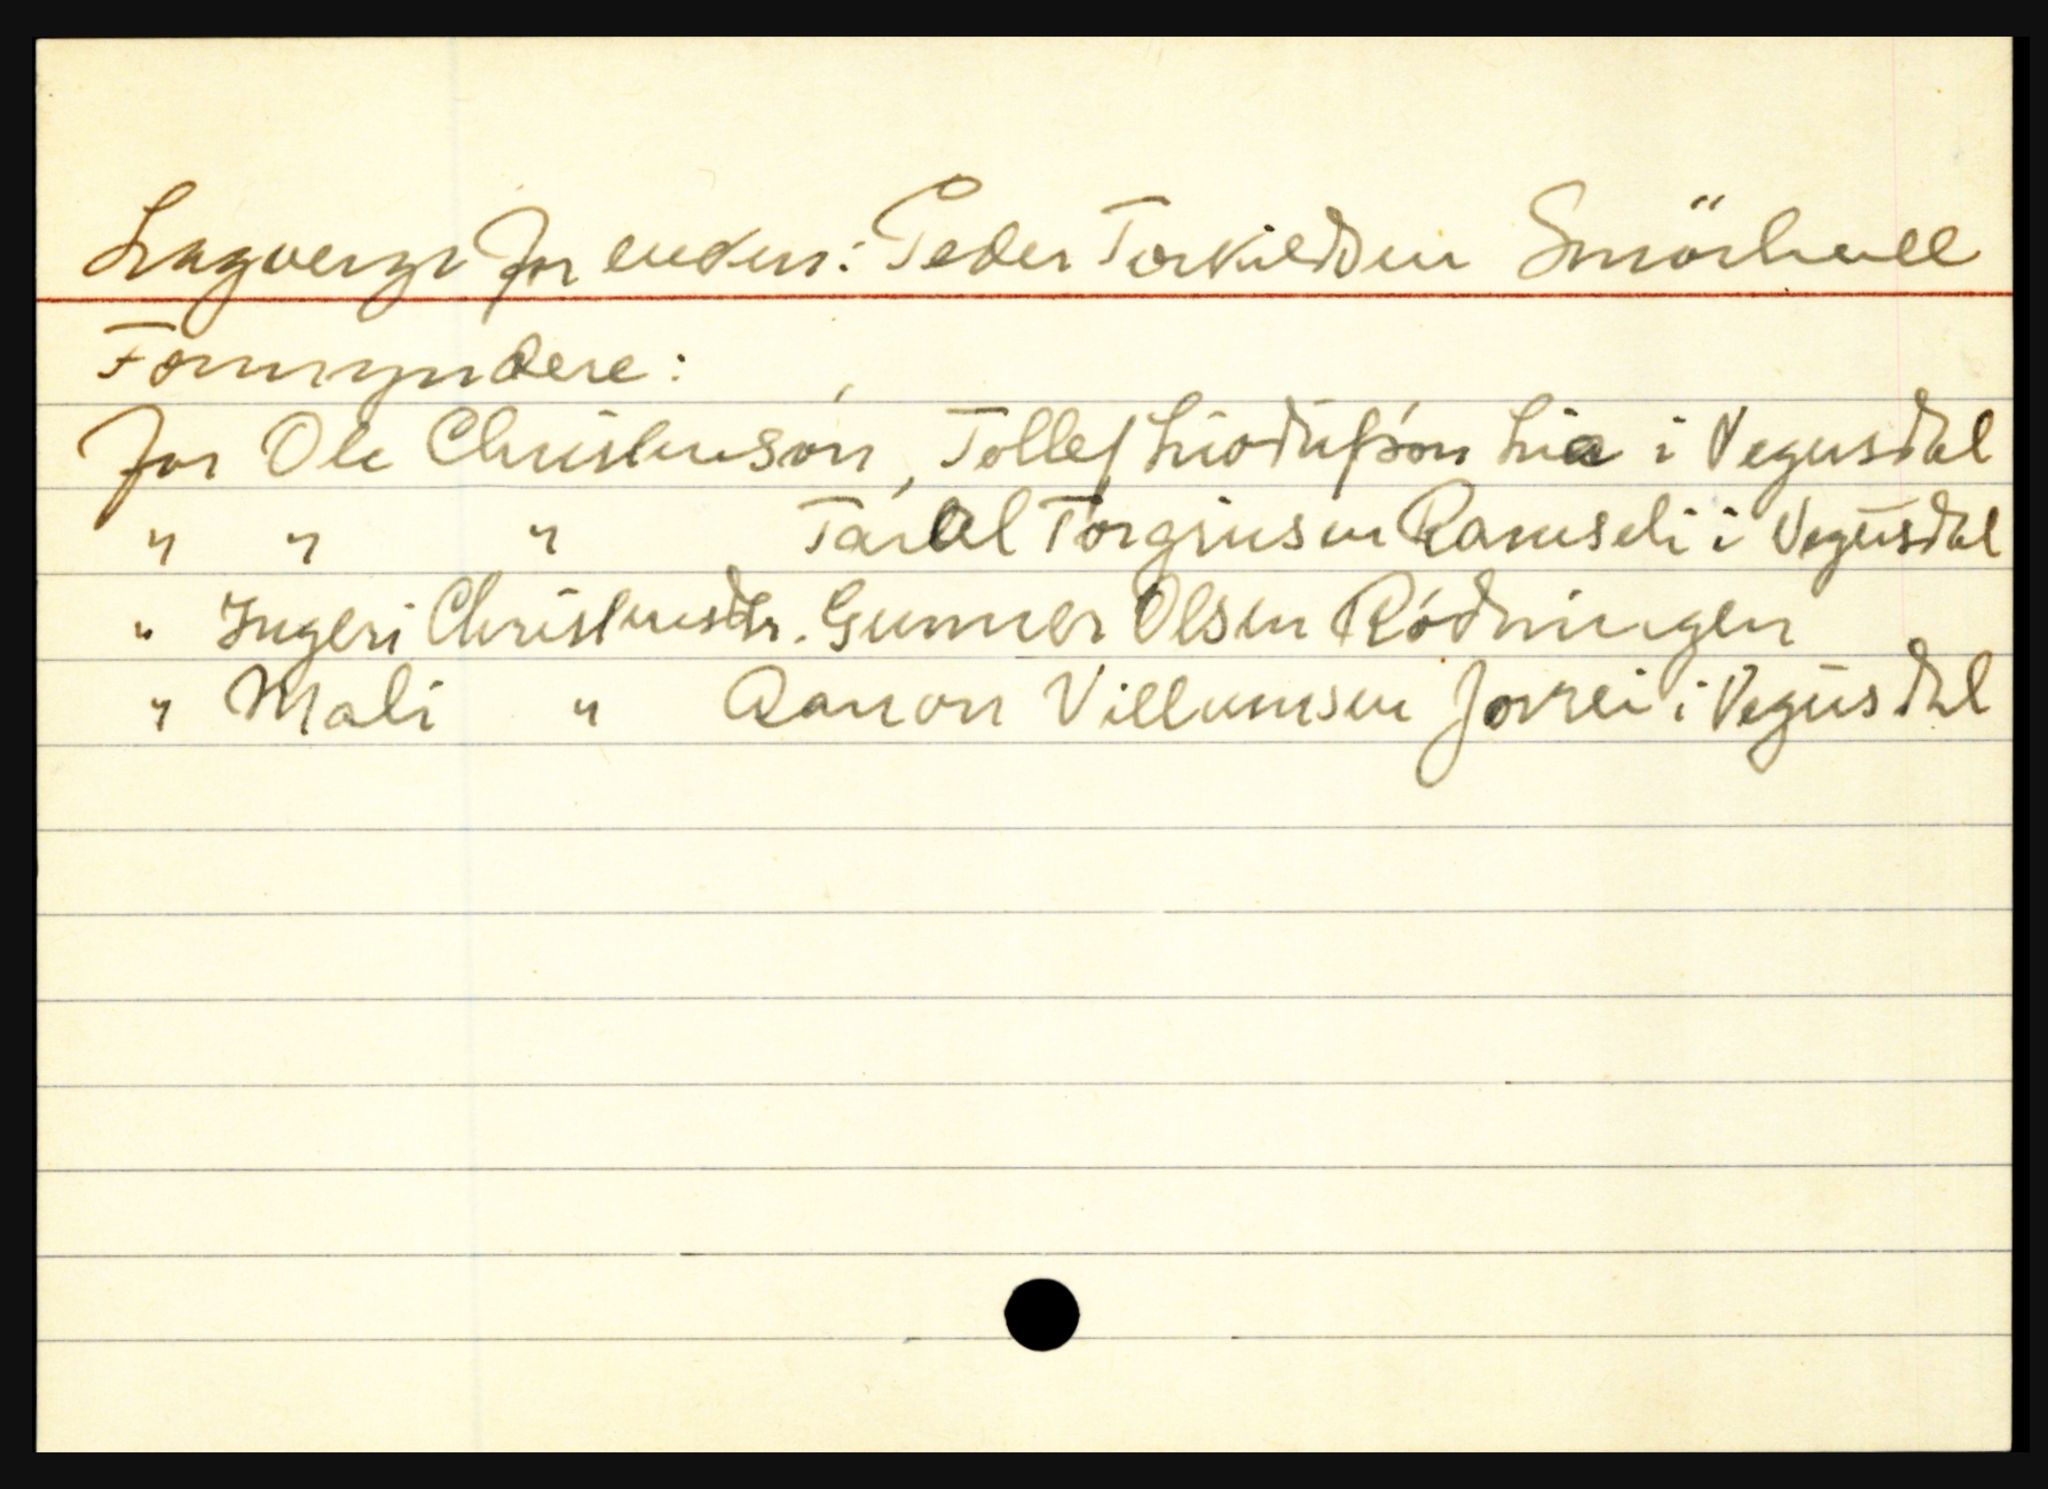 Lagverge for enken: Peder Torkildsen Smörhuell
Formyndere:
for Ole Christensön, Tollef Liodufsön Lia i Vegusdal
" " " Tarald Torgriusen Ramseli i Vegusdal
" Ingeri Christensdtr. Gunner Olsen Rödningen
" Mali " Aanon Villumsen Jovrei i Vegusdal